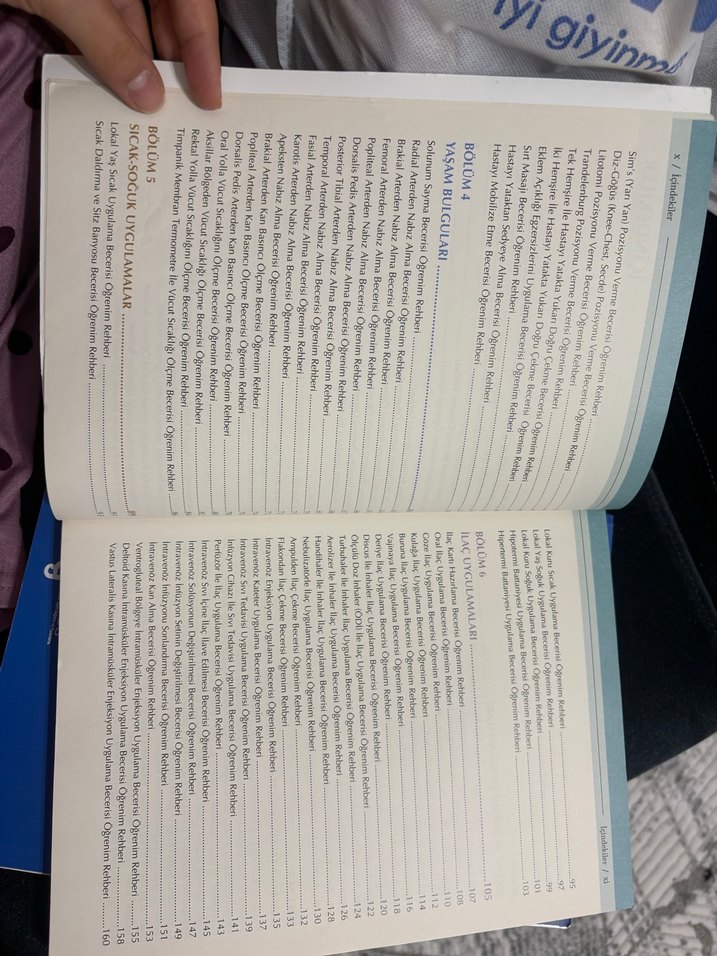 iyi giyinm
x / İçindekiler
Sim's (Yarı Yan) Pozisyonu Verme Becerisi Öğrenim Rehberi
Diz-Göğüs (Knee-Chest, Secde) Pozisyonu Verme Becerisi Öğrenim Rehberi
Litotomi Pozisyonu Verme Becerisi Öğrenim Rehberi
Trandelenburg Pozisyonu Verme Becerisi Öğrenim Rehberi
Tek Hemşire İle Hastayı Yatakta Yukarı Doğru Çekme Becerisi Öğrenim Rehberi
İki Hemşire İle Hastayı Yatakta Yukarı Doğru Çekme Becerisi Öğrenim Rehberi
Eklem Açıklığı Egzersizlerini Uygulama Becerisi Öğrenim Rehberi
Sırt Masajı Becerisi Öğrenim Rehberi
Hastayı Yataktan Sedyeye Alma Becerisi Öğrenim Rehberi
Hastayı Mobilize Etme Becerisi Öğrenim Rehberi
BÖLÜM 4
YAŞAM BULGULARI
Solunum Sayma Becerisi Öğrenim Rehberi
Radial Arterden Nabız Alma Becerisi Öğrenim Rehberi
Brakial Arterden Nabız Alma Becerisi Öğrenim Rehberi
Femoral Arterden Nabız Alma Becerisi Öğrenim Rehberi
Popliteal Arterden Nabız Alma Becerisi Öğrenim Rehberi
Dorsalis Pedis Arterden Nabız Alma Becerisi Öğrenim Rehberi
Posterior Tibial Arterden Nabız Alma Becerisi Öğrenim Rehberi
Temporal Arterden Nabız Alma Becerisi Öğrenim Rehberi
Fasial Arterden Nabız Alma Becerisi Öğrenim Rehberi
Karotis Arterden Nabız Alma Becerisi Öğrenim Rehberi
Apeksten Nabız Alma Becerisi Öğrenim Rehberi
Brakial Arterden Kan Basıncı Ölçme Becerisi Öğrenim Rehberi
Popliteal Arterden Kan Basıncı Ölçme Becerisi Öğrenim Rehberi
Dorsalis Pedis Arterden Kan Basıncı Ölçme Becerisi Öğrenim Rehberi
Oral Yolla Vücut Sıcaklığını Ölçme Becerisi Öğrenim Rehberi
Aksillar Bölgeden Vücut Sıcaklığı Ölçme Becerisi Öğrenim Rehberi
Rektal Yolla Vücut Sıcaklığını Ölçme Becerisi Öğrenim Rehberi
Timpanik Membran Termometre İle Vücut Sıcaklığı Ölçme Becerisi Öğrenim Rehberi
BÖLÜM 5
SICAK-SOĞUK UYGULAMALAR
Lokal Yaş Sıcak Uygulama Becerisi Öğrenim Rehberi
Sıcak Daldırma ve Sitz Banyosu Becerisi Öğrenim Rehberi
İçindekiler / xi
Lokal Kuru Sıcak Uygulama Becerisi Öğrenim Rehberi 95
Lokal Yaş Soğuk Uygulama Becerisi Öğrenim Rehberi 97
Lokal Kuru Soğuk Uygulama Becerisi Öğrenim Rehberi 99
Hipotermi Battaniyesi Uygulama Becerisi Öğrenim Rehberi 101
Hipertermi Battaniyesi Uygulama Becerisi Öğrenim Rehberi 103
BÖLÜM 6
İLAÇ UYGULAMALARI 105
İlaç Kartı Hazırlama Becerisi Öğrenim Rehberi 107
Oral İlaç Uygulama Becerisi Öğrenim Rehberi 108
Göze İlaç Uygulama Becerisi Öğrenim Rehberi 110
Kulağa İlaç Uygulama Becerisi Öğrenim Rehberi 112
Buruna İlaç Uygulama Becerisi Öğrenim Rehberi 114
Vajinaya İlaç Uygulama Becerisi Öğrenim Rehberi 116
Deriye İlaç Uygulama Becerisi Öğrenim Rehberi 118
Discus İle İnhaler İlaç Uygulama Becerisi Öğrenim Rehberi 120
Ölçülü Doz İnhaler (ÖDİ) İle İlaç Uygulama Becerisi Öğrenim Rehberi 122
Turbuhaler İle İnhaler İlaç Uygulama Becerisi Öğrenim Rehberi 124
Aerolizer İle İnhaler İlaç Uygulama Becerisi Öğrenim Rehberi 126
Handihaler İle İnhaler İlaç Uygulama Becerisi Öğrenim Rehberi 128
Nebülizatörle İlaç Uygulama Becerisi Öğrenim Rehberi 130
Ampulden İlaç Çekme Becerisi Öğrenim Rehberi 132
Flakondan İlaç Çekme Becerisi Öğrenim Rehberi 133
İntravenöz Enjeksiyon Uygulama Becerisi Öğrenim Rehberi 135
İntravenöz Kateter Uygulama Becerisi Öğrenim Rehberi 137
İntravenöz Sıvı Tedavisi Uygulama Becerisi Öğrenim Rehberi 139
İnfüzyon Cihazı İle Sıvı Tedavisi Uygulama Becerisi Öğrenim Rehberi 141
Perfüzör İle İlaç Uygulama Becerisi Öğrenim Rehberi 143
İntravenöz Sıvı İçine İlaç İlave Edilmesi Becerisi Öğrenim Rehberi 145
İntravenöz Solüsyonun Değiştirilmesi Becerisi Öğrenim Rehberi 147
İntravenöz İnfüzyon Setinin Değiştirilmesi Becerisi Öğrenim Rehberi 149
İntravenöz İnfüzyonu Sonlandırma Becerisi Öğrenim Rehberi 151
İntravenöz Kan Alma Becerisi Öğrenim Rehberi 153
Ventrogluteal Bölgeye İntramüsküler Enjeksiyon Uygulama Becerisi Öğrenim Rehberi 155
Deltoid Kasına İntramusküler Enjeksiyon Uygulama Becerisi Öğrenim Rehberi 158
Vastus Lateralis Kasına İntramusküler Enjeksiyon Uygulama Becerisi Öğrenim Rehberi 160